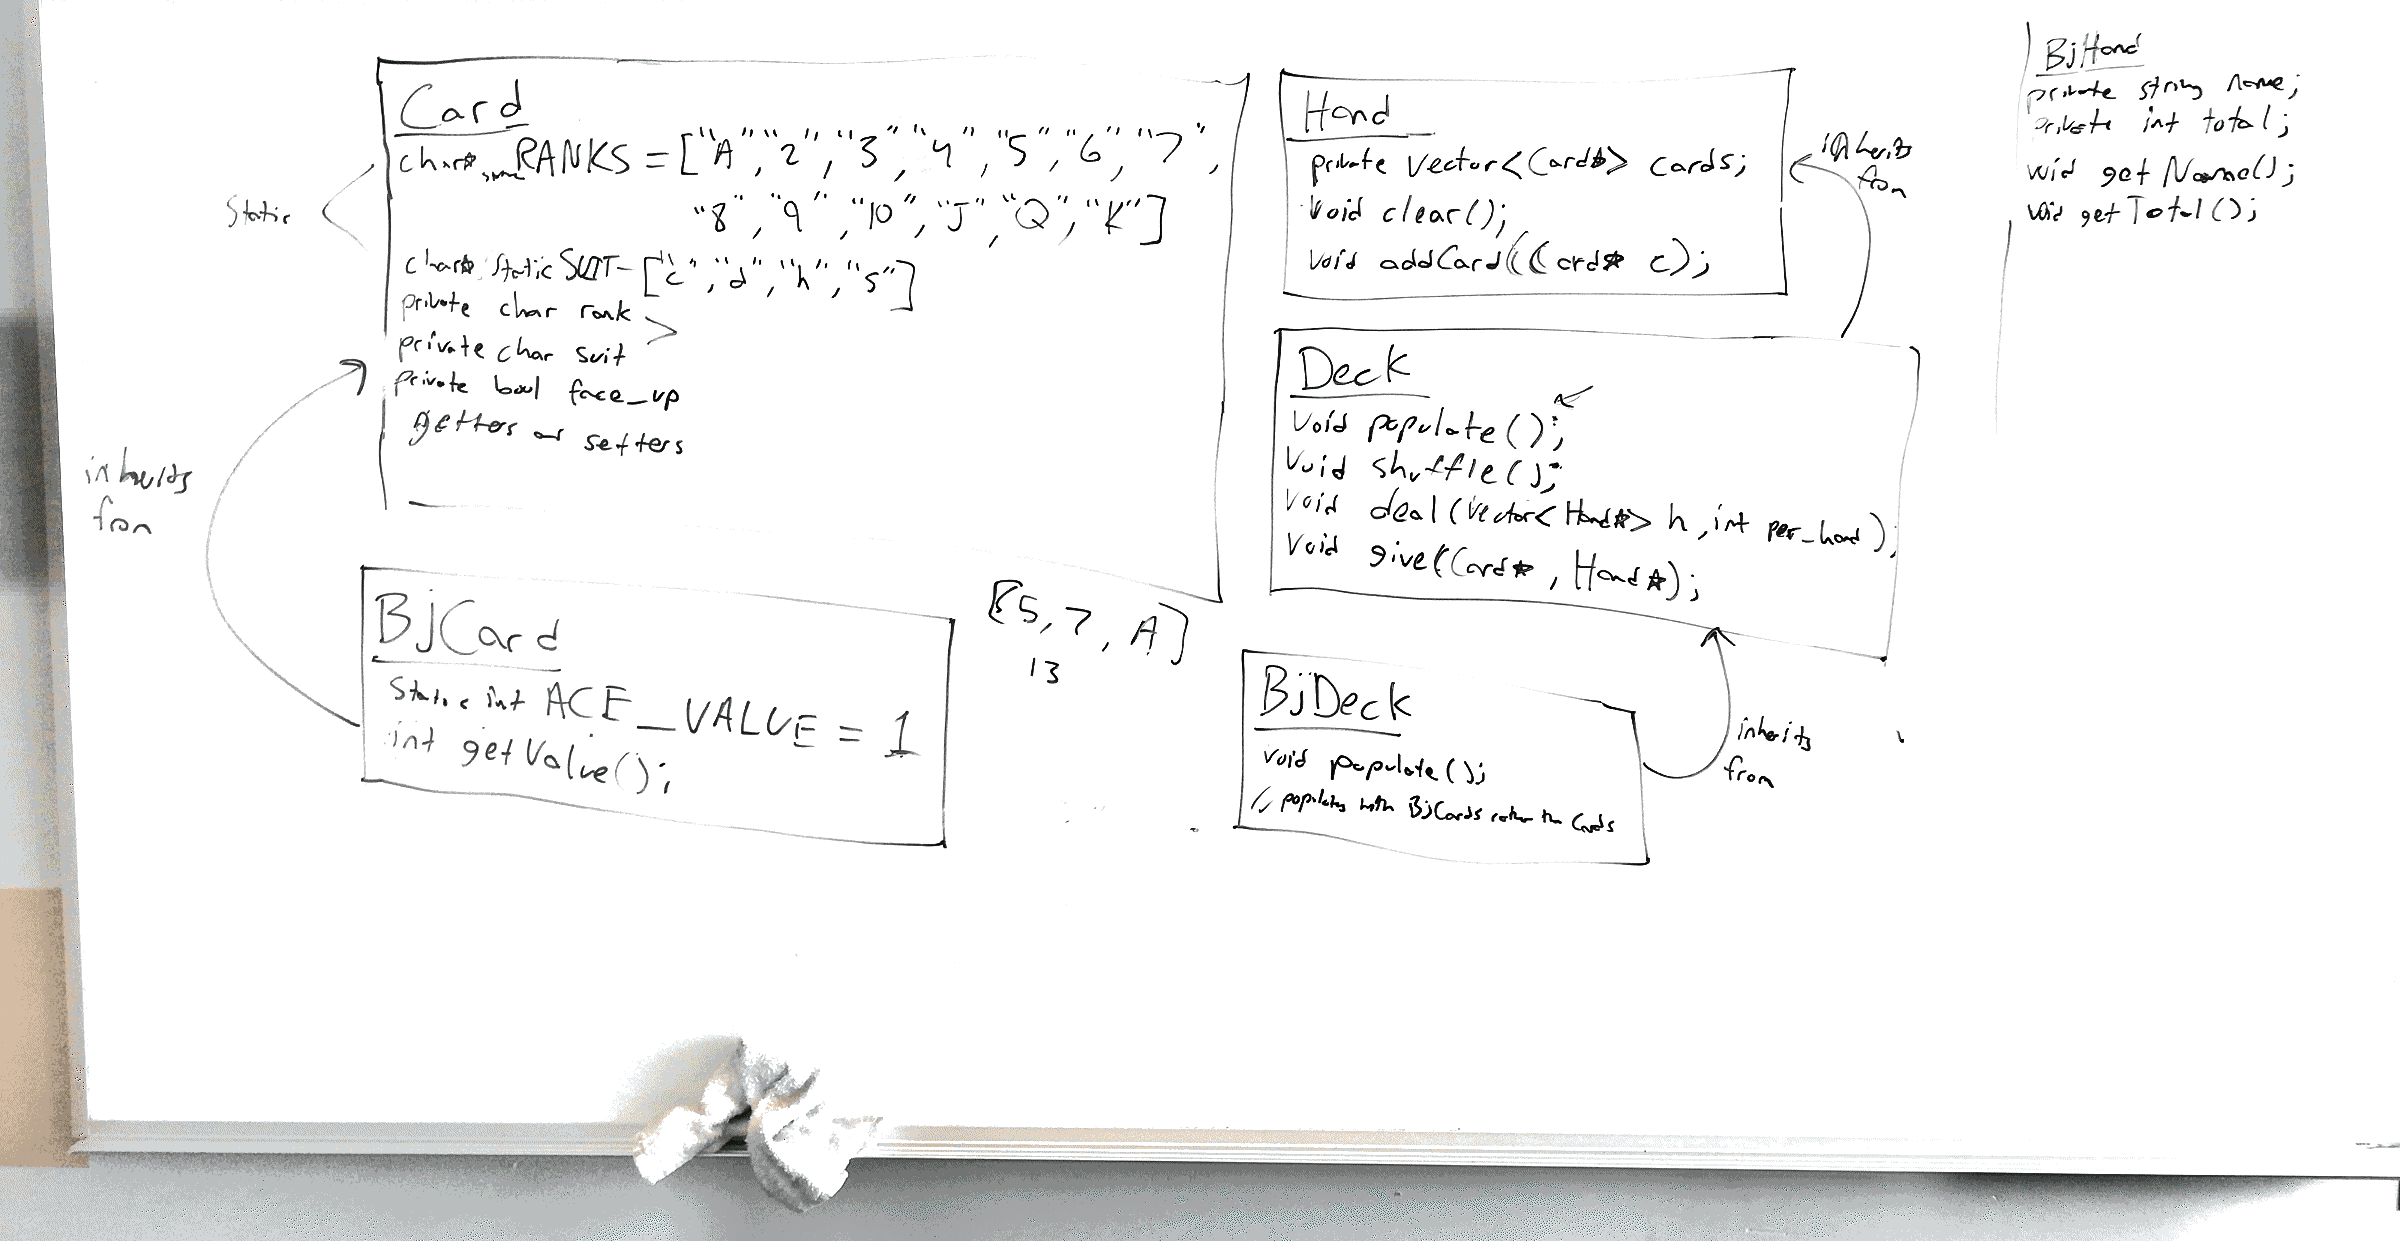 Card
char* static RANKS = ["A","2","3","4","5","6","7",
"8","9","10","J","Q","K"]
static
char* static SUIT = ["c","d","h","s"]
private char rank
private char suit
private bool face_up
getters and setters
inherits
from
BjCard
static int ACE_VALUE = 1
int getValue();
[5,7,A]
13
Hand
private Vector<Card*> cards;
void clear();
void addCard(Card* c);
inherits
from
Deck
void populate();
void shuffle();
void deal(Vector<Hand*> h, int per_hand);
void give(Card*, Hand*);
BjDeck
void populate();
// populates with BjCards rather than Cards
inherits
from
BjHand
private string name;
private int total;
void getName();
void getTotal();